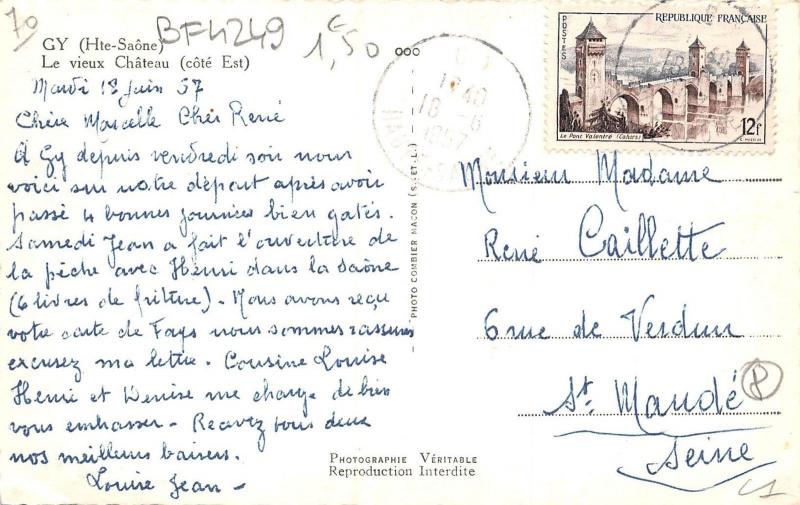 70
BF4249
1€,50
GY (Hte-Saône)
Le vieux Château (côté Est)
Mardi 18 juin 57
Chère Marcelle Cher René
A Gy depuis vendredi soir nous
voici sur notre départ après avoir
passé 4 bonnes journées bien gatés.
Samedi Jean a fait l'ouverture de
la pêche avec Henri dans la Saône
(6 livres de friture). Nous avons reçu
votre carte de Fays nous sommes rassurés
excusez ma lettre. Cousine Louise
Henri et Denise me charge de bien
vous embrasser. Recevez tous deux
nos meilleurs baisers.
Louise Jean -
PHOTO COMBIER MACON (S.-ET-L.)
PHOTOGRAPHIE VÉRITABLE
Reproduction Interdite
18 - 6
1957
POSTES
REPUBLIQUE FRANÇAISE
Le Pont Valentré (Cahors)
12f
Monsieur Madame
René Caillette
6 rue de Verdun
St. Mandé
Seine
P